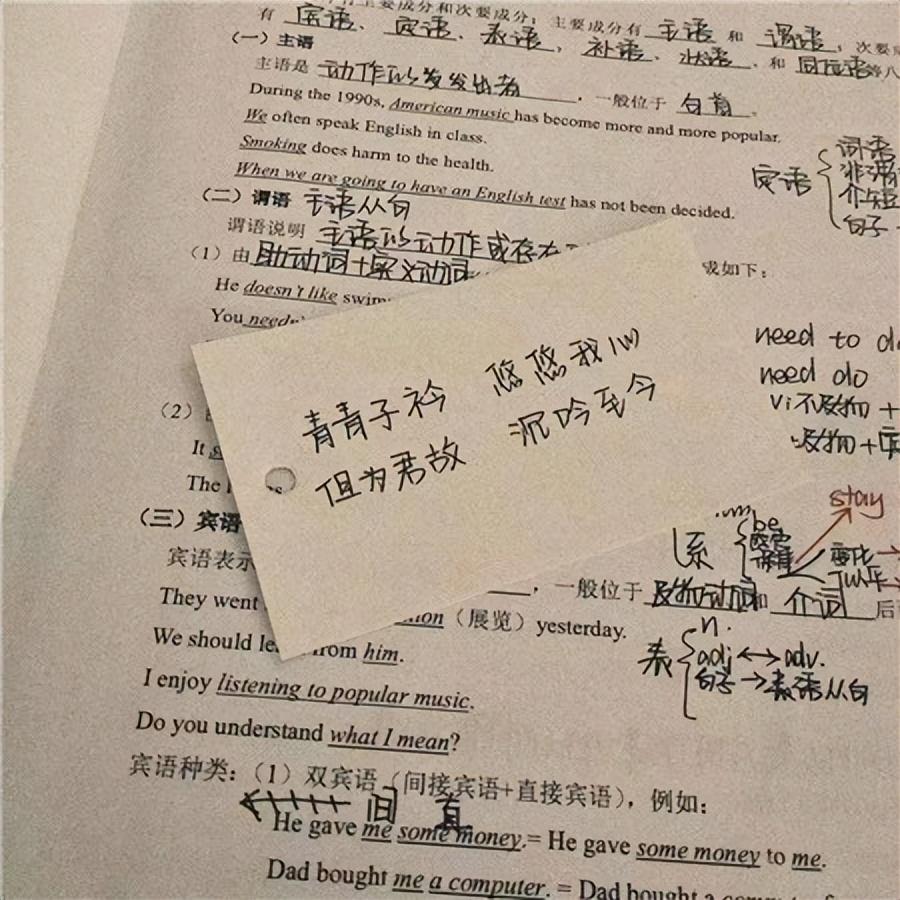 有主要成分和次要成分；主要成分有 主语 和 谓语，次要
有 宾语、定语、表语，补语、状语、和 同位语等八
（一）主语
主语是 动作的发出者，一般位于 句首。
During the 1990s, American music has become more and more popular.
We often speak English in class.
Smoking does harm to the health.
When we are going to have an English test has not been decided.
定语
词语
介短
句子
（二）谓语 主语从句
谓语说明 主语的动作或存在
（1）由助动词+实义动词
或如下：
He doesn't like swim
You
need to do
need do
vi不及物 +
及物+宾
青青子衿 悠悠我心
但为君故 沉吟至今
（2）
It
The
stay
（三）宾语
系
be
变化
宾语表示
，一般位于 及物动词和 介词 后
They went
（展览）yesterday.
表
n.
We should from him.
adj ↔ adv.
句子 → 表语从句
I enjoy listening to popular music.
Do you understand what I mean?
宾语种类：（1）双宾语（间接宾语+直接宾语），例如：
间 直
He gave me some money.= He gave some money to me.
Dad bought me a computer. = Dad bought a